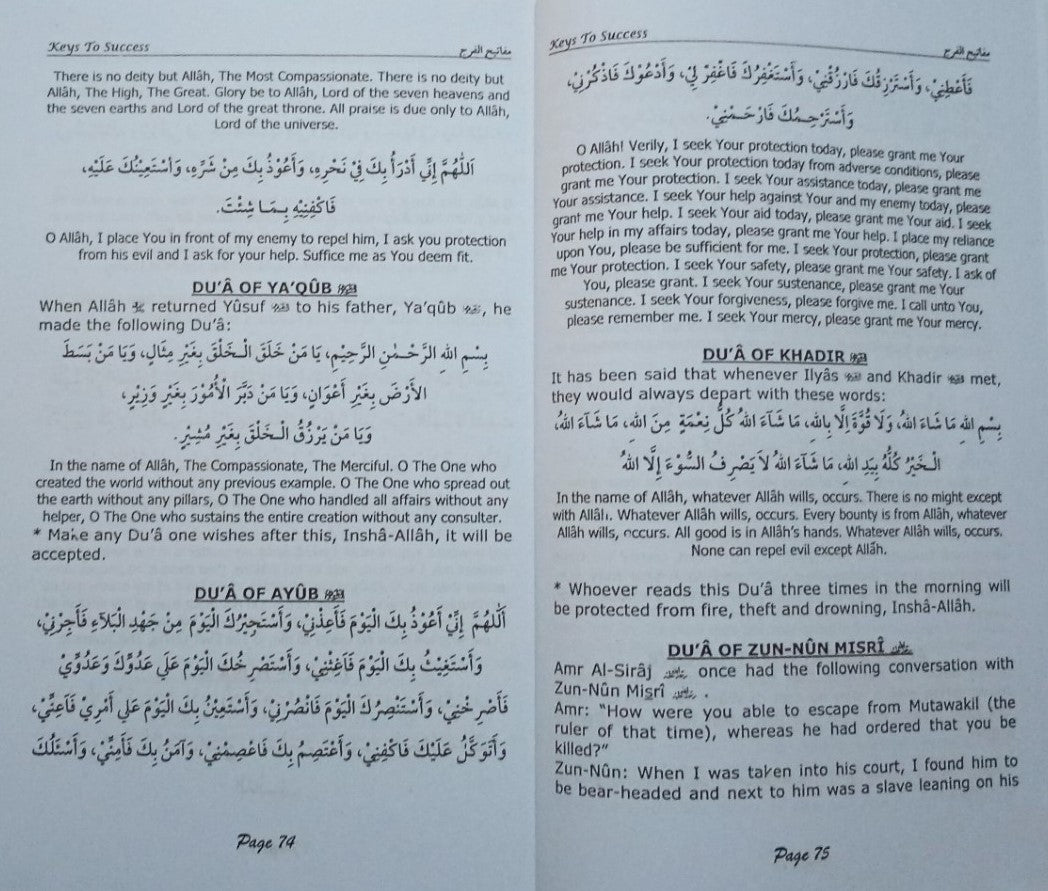 Keys To Success مفاتيح الفرج
There is no deity but Allâh, The Most Compassionate. There is no deity but
Allâh, The High, The Great. Glory be to Allâh, Lord of the seven heavens and
the seven earths and Lord of the great throne. All praise is due only to Allâh,
Lord of the universe.
اَللّٰهُمَّ إِنِّي أَدْرَأُ بِكَ فِيْ نَحْرِهِ، وَأَعُوْذُ بِكَ مِنْ شَرِّهِ، وَأَسْتَعِيْنُكَ عَلَيْهِ،
فَاكْفِنِيْهِ بِـمَا شِئْتَ.
O Allâh, I place You in front of my enemy to repel him, I ask you protection
from his evil and I ask for your help. Suffice me as You deem fit.
DU’Â OF YA’QÛB
When Allâh ﷻ returned Yûsuf to his father, Ya’qûb , he
made the following Du’â:
بِسْمِ اللهِ الرَّحْـمٰنِ الرَّحِيْمِ، يَا مَنْ خَلَقَ الْـخَلْقَ بِغَيْرِ مِثَالٍ، وَيَا مَنْ بَسَطَ
الأَرْضَ بِغَيْرِ أَعْوَانٍ، وَيَا مَنْ دَبَّرَ الْأُمُوْرَ بِغَيْرِ وَزِيْرٍ،
وَيَا مَنْ يَرْزُقُ الْـخَلْقَ بِغَيْرِ مُشِيْرٍ.
In the name of Allâh, The Compassionate, The Merciful. O The One who
created the world without any previous example. O The One who spread out
the earth without any pillars, O The One who handled all affairs without any
helper, O The One who sustains the entire creation without any consulter.
* Make any Du’â one wishes after this, Inshâ-Allâh, it will be
accepted.
DU’Â OF AYÛB
اَللّٰهُمَّ إِنِّيْ أَعُوْذُ بِكَ الْيَوْمَ فَأَعِذْنِيْ، وَأَسْتَجِيْرُكَ الْيَوْمَ مِنْ جَهْدِ الْبَلَآءِ فَأَجِرْنِيْ،
وَأَسْتَغِيْثُ بِكَ الْيَوْمَ فَأَغِثْنِيْ، وَأَسْتَصْرِخُكَ الْيَوْمَ عَلَى عَدُوِّكَ وَعَدُوِّيْ
فَأَصْرِخْنِيْ، وَأَسْتَنْصِرُكَ الْيَوْمَ فَانْصُرْنِيْ، وَأَسْتَعِيْنُ بِكَ الْيَوْمَ عَلَى أَمْرِيْ فَأَعِنِّيْ،
وَأَتَوَكَّلُ عَلَيْكَ فَاكْفِنِيْ، وَأَعْتَصِمُ بِكَ فَاعْصِمْنِيْ، وَآمَنُ بِكَ فَأَمِنِّيْ، وَأَسْئَلُكَ
Page 74
Keys To Success مفاتيح الفرج
فَأَعْطِنِيْ، وَأَسْتَرْزِقُكَ فَارْزُقْنِيْ، وَأَسْتَغْفِرُكَ فَاغْفِرْ لِيْ، وَأَدْعُوْكَ فَاذْكُرْنِيْ،
وَأَسْتَرْحِـمُكَ فَارْحَـمْنِيْ.
O Allâh! Verily, I seek Your protection today, please grant me Your
protection. I seek Your protection today from adverse conditions, please
grant me Your protection. I seek Your assistance today, please grant me
Your assistance. I seek Your help against Your and my enemy today, please
grant me Your help. I seek Your aid today, please grant me Your aid. I seek
Your help in my affairs today, please grant me Your help. I place my reliance
upon You, please be sufficient for me. I seek Your protection, please grant
me Your protection. I seek Your safety, please grant me Your safety. I ask of
You, please grant. I seek Your sustenance, please grant me Your
sustenance. I seek Your forgiveness, please forgive me. I call unto You,
please remember me. I seek Your mercy, please grant me Your mercy.
DU’Â OF KHADIR
It has been said that whenever Ilyâs and Khadir met,
they would always depart with these words:
بِسْمِ اللهِ مَا شَاءَ اللهُ، وَلَا قُوَّةَ إِلَّا بِاللهِ، مَا شَآءَ اللهُ كُلُّ نِعْمَةٍ مِنَ اللهِ، مَا شَآءَ اللهُ،
الْـخَيْرُ كُلُّهُ بِيَدِ اللهِ، مَا شَآءَ اللهُ لَا يَصْرِفُ السُّوْءَ إِلَّا اللهُ
In the name of Allâh, whatever Allâh wills, occurs. There is no might except
with Allâh. Whatever Allâh wills, occurs. Every bounty is from Allâh, whatever
Allâh wills, occurs. All good is in Allâh’s hands. Whatever Allâh wills, occurs.
None can repel evil except Allâh.
* Whoever reads this Du’â three times in the morning will
be protected from fire, theft and drowning, Inshâ-Allâh.
DU’Â OF ZUN-NÛN MISRÎ
Amr Al-Sirâj once had the following conversation with
Zun-Nûn Misrî .
Amr: “How were you able to escape from Mutawakil (the
ruler of that time), whereas he had ordered that you be
killed?”
Zun-Nûn: When I was taken into his court, I found him to
be bear-headed and next to him was a slave leaning on his
Page 75